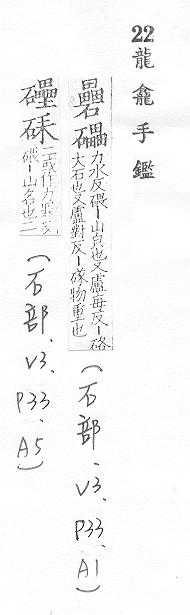 22 龍龕手鑑
礨礧力水反碨丨山皃也又盧每反丨硌
大石也又盧對反丨物重也
(石部、V3、P33、A1)
二或作力罪反
碨丨山名也二
(石部、V3、P33、A5)